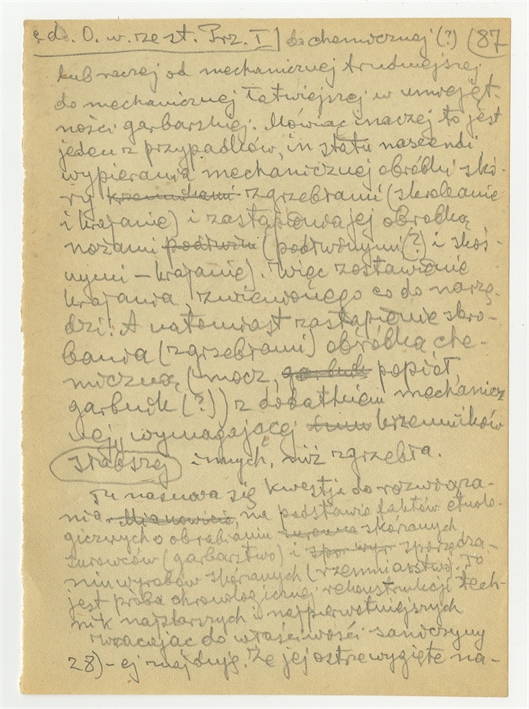 c. d. O. w. ze st. Prz. I do chemicznej (?) (87
lub raczej od mechanicznej trudniejszej
do mechanicznej łatwiejszej w umiejęt-
ności garbarskiej. Mówiąc inaczej to jest
jeden z przypadków, in statu nascendi
wypierania mechanicznej obróbki skó-
ry krzemieniami zgrzebłami (skrobanie
i krajanie) i zastąpienia jej obróbką
nożami (podwójnymi (?) i skoś-
nymi – krajanie). Więc zostawienie
krajania zmienionego co do narzę-
dzi. A natomiast zastąpienie skro-
bania (zgrzebłami) obróbką che-
miczną (mocz, garbnik popiół,
garbnik (?)) z dodatkiem mechanicz
nej, wymagającej krzemników
słabszej innych, niż zgrzebła.
Tu nasuwa się kwestja do rozwiąza-
nia Mianowicie, na podstawie faktów etnolo-
gicznych o obrabianiu surowca skórzanych
surowców (garbarstwo) i sporządza-
niu wyrobów skórzanych (rzemniarstwo). To
jest próba chronologicznej rekonstrukcji tech-
nik najstarszych i najpierwotniejszych
Wracając do właściwości saniczyny
28)-ej znajduję, że jej ostrze wygięte na-